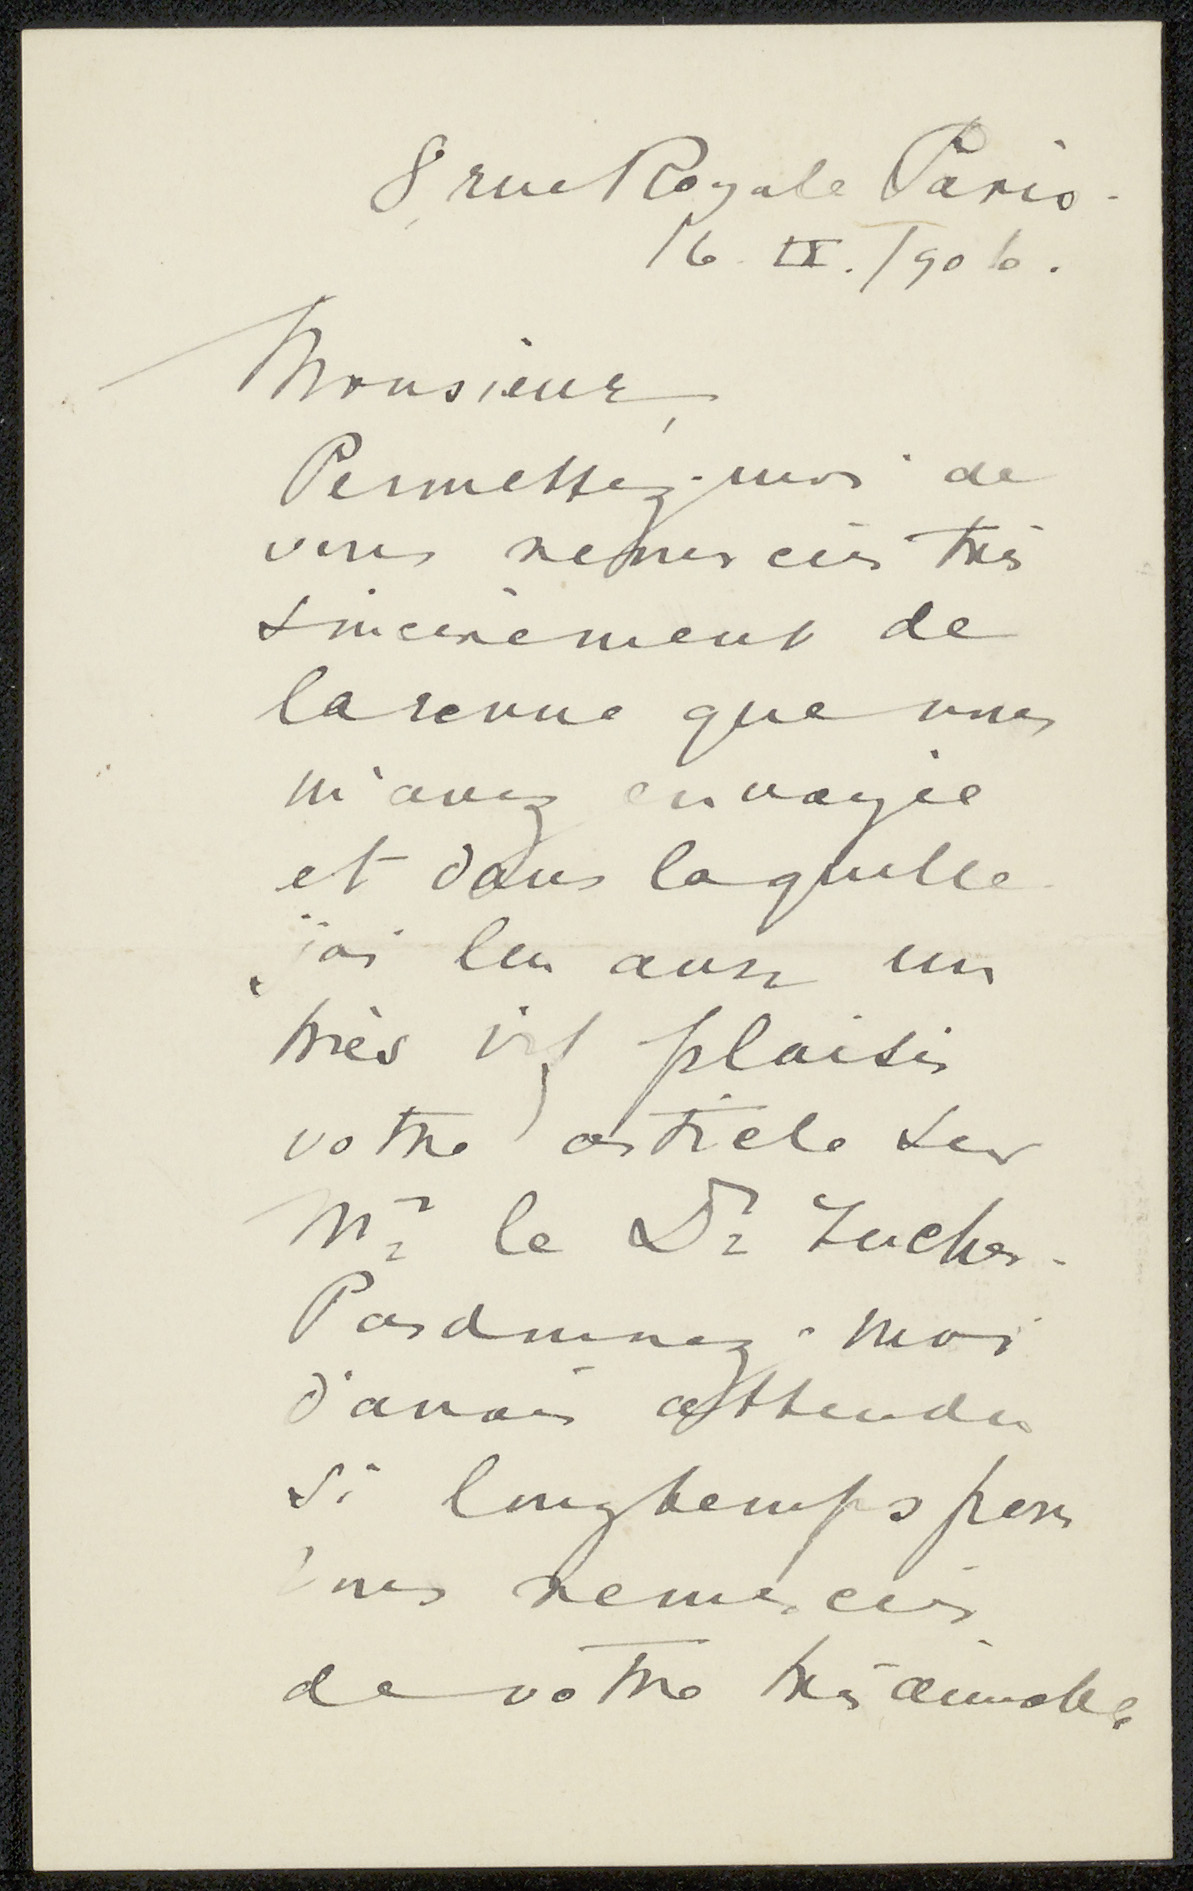 8 rue Royale Paris.
16 IX. 1906.
Monsieur,
Permettez-moi de
vous remercier très
sincèrement de
la revue que vous
m'avez envoyée
et dans laquelle
j'ai lu avec un
très vif plaisir
votre article sur
Mr le Dr
Pardonnez-moi
d'avoir attendu
si longtemps pour
vous remercier
de votre très aimable